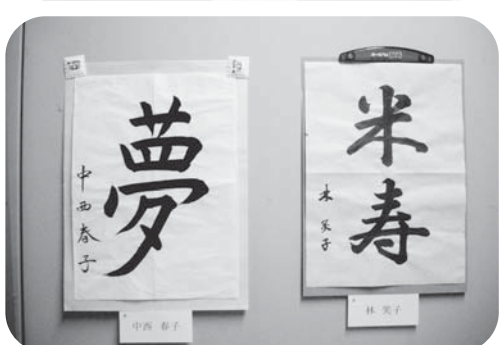 夢
中西春子
中西 春子
米寿
笑子
林 笑子